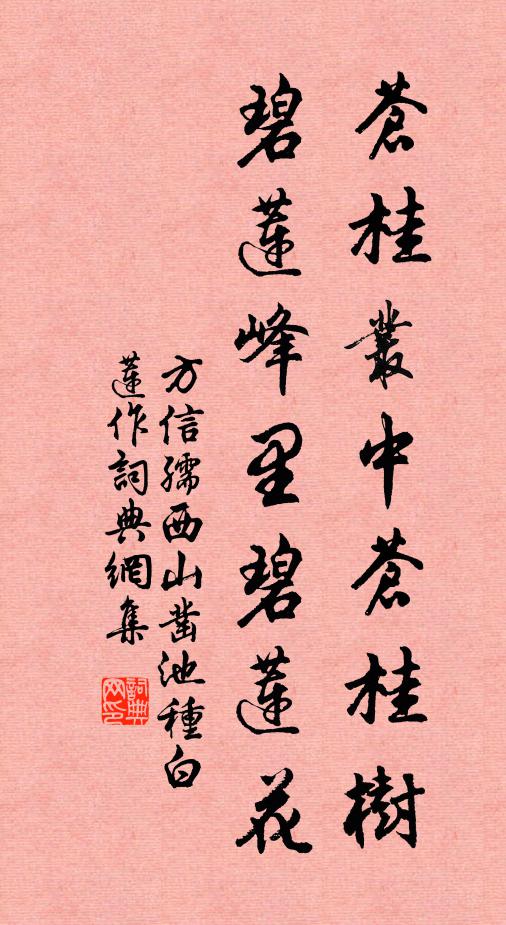 蒼桂叢中蒼桂樹
碧蓮峰里碧蓮花
方信孺西山凿池種白
蓮作詞典網集
詞典
网印